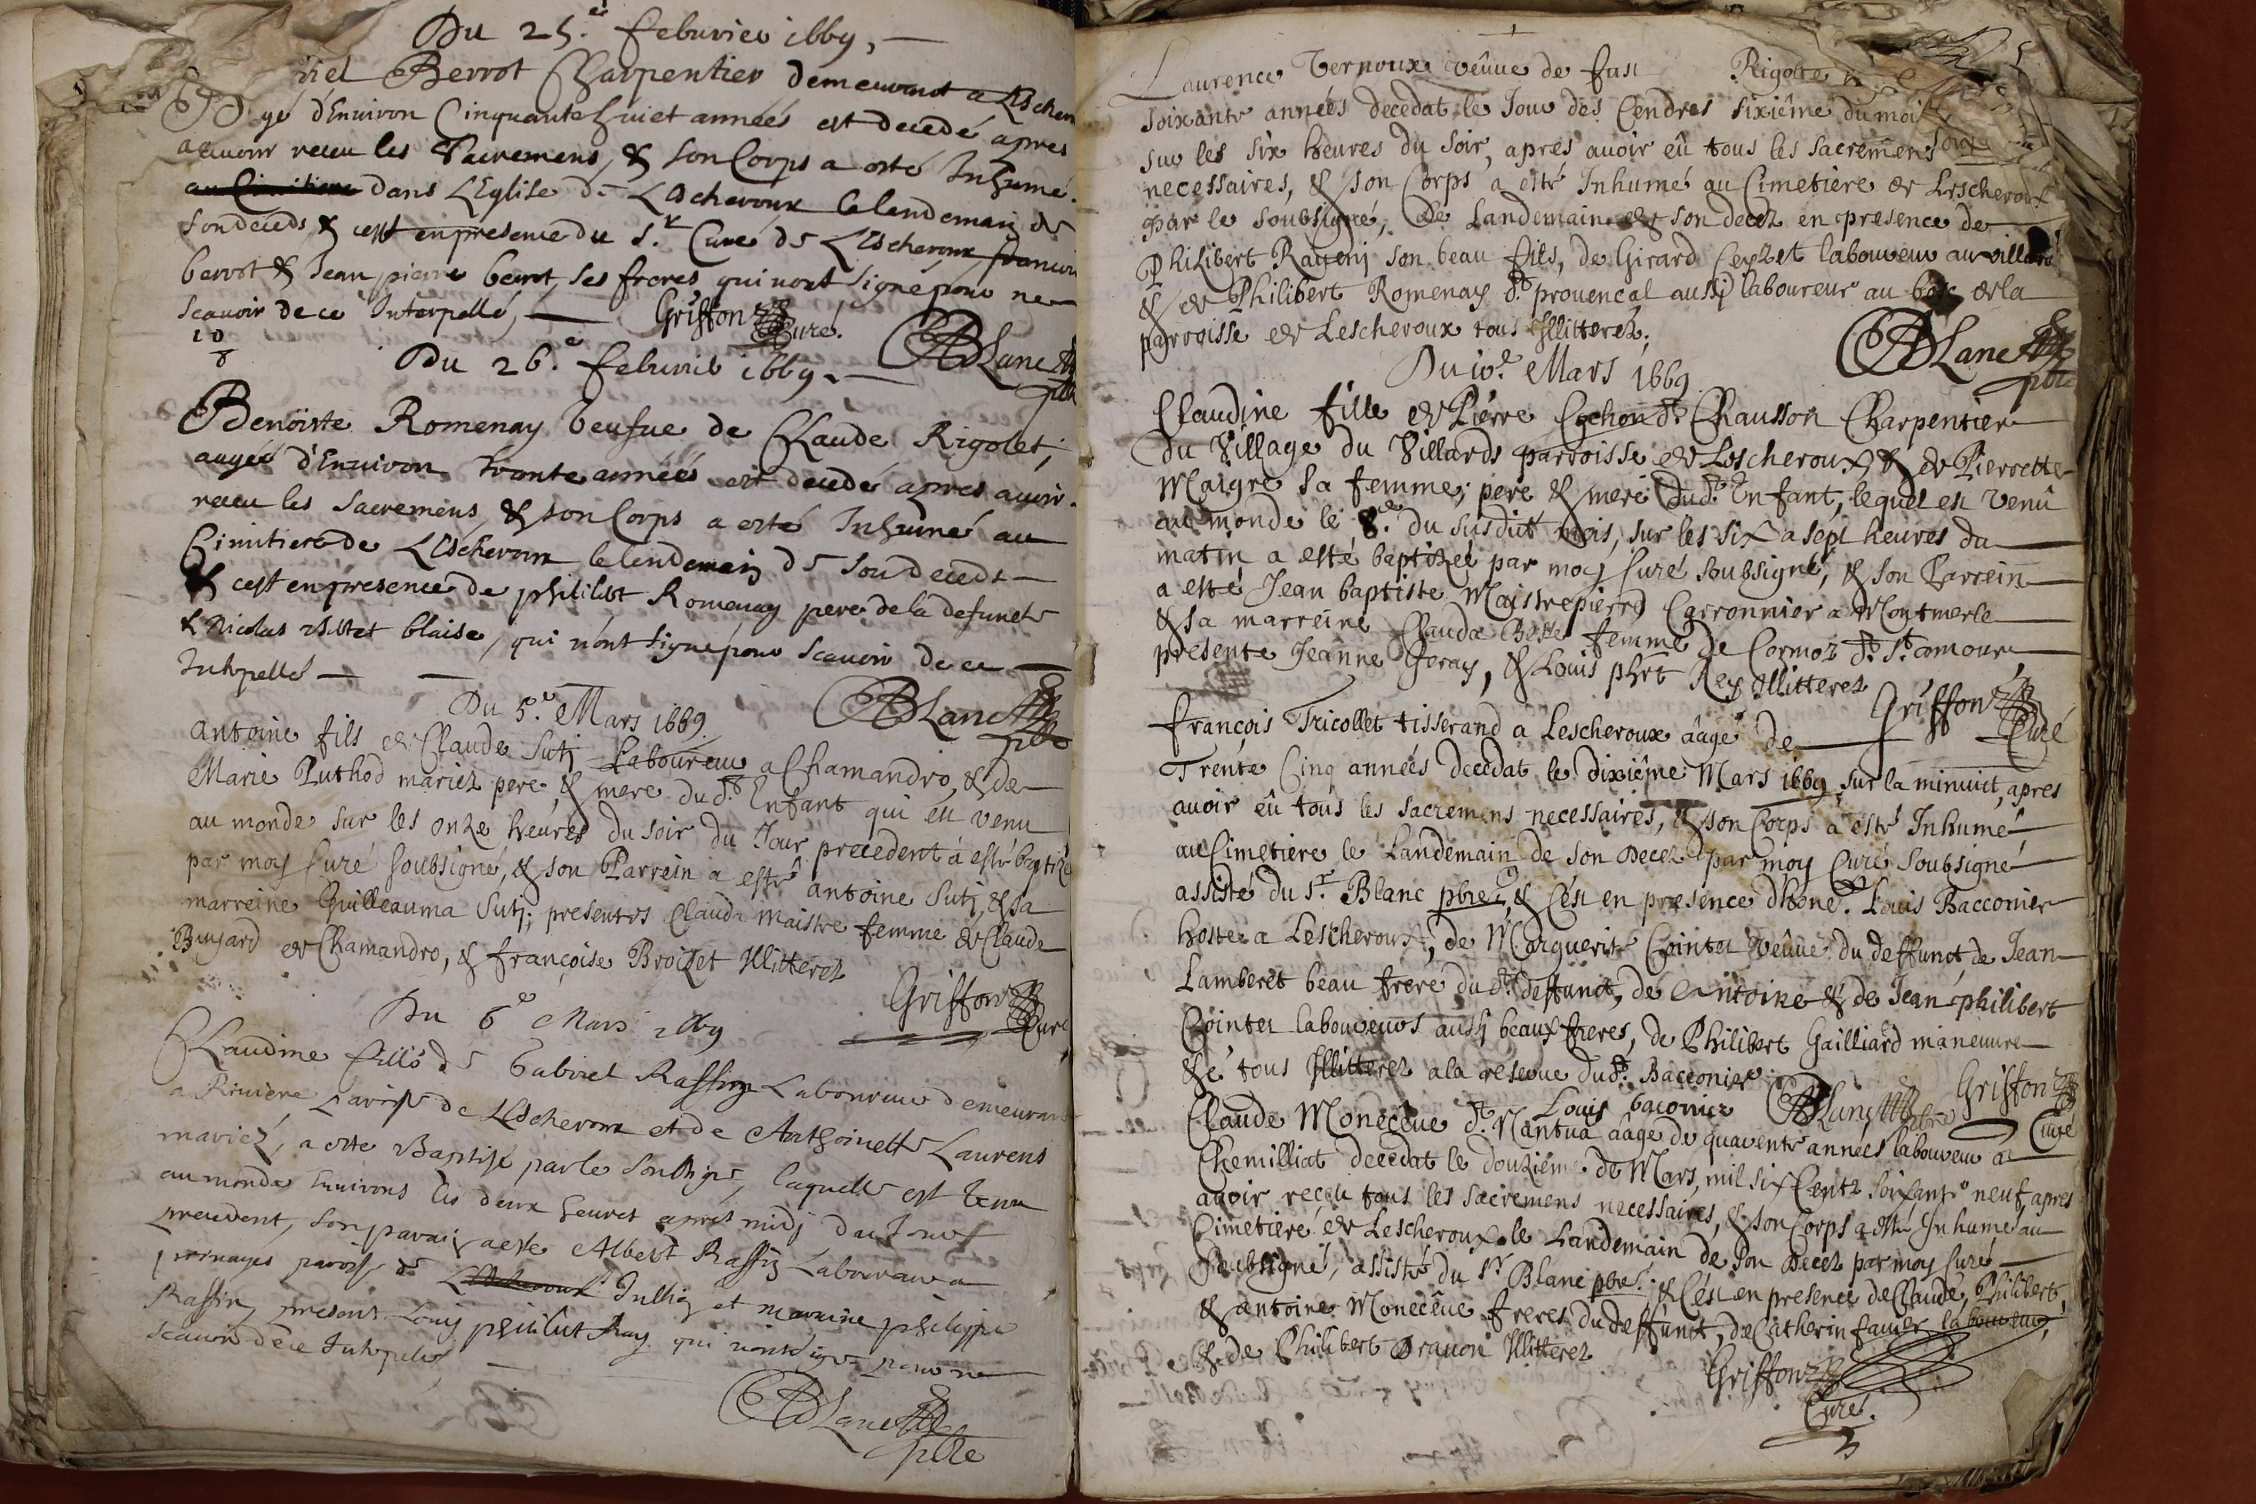 Du 25.e februier 1669,
riel Berrot Charpentier demeurant a Leschero
agé d'Enuiron Cinquante huict années est decedé apres
auuoir receu les Sacremens, & son Corps a esté Inhumé
au Cimitiere dans L'Eglise de Lescheroux le lendemain de
son deceds & cest en presence du Sr. Curé de Lescheroux francois
berrot & Jean pierre berrot, ses freres qui nont signé pour ne
scauoir de ce Interpellé,
Griffon Curé.
Blanc pbre
Du 26.e februier 1669.
Benoiste Romenay veufue de Claude Rigolet,
augée d'Enuiron trante années est decedé apres auoir
receu les Sacremens, & son Corps a esté Inhumé au
Cimitiere de Lescheroux le lendemain de son deceds
& cest en presence de philibt Romenay pere de la defuncte
& Nicolas blaise, qui n'ont signé pour scauoir de ce
Interpellé
Blanc pbre
Du 5.e Mars 1669.
Antoine fils de Claude Sutj Laboureur a Chamandro, & de
Marie Puthod mariez pere, & mere dud.t Enfant qui est venu
au monde sur les onze heures du soir du Jour precedent a esté baptizé
par moy Curé soubsigné, & son Parrein a esté antoine Sutj, & sa
marreine Guilleauma Sutj; presentes Clauda Maistre femme de Claude
Bujard de Chamandro, & françoise Broizet Illitterez
Griffon Curé
Du 6e Mars 1669
Claudine fille de Gabriel Raffin Laboureur demeurant
a Riuiere Parisse de Lescheroux et de Anthoinette Laurens
mariez, a esté Baptisé par le soubsigné, laquelle est venu
au monde Enuirons les deux heures apres midj du Jour
precedent, son parain a esté Albert Raffin Laboureur a
prenayes paroisse de Lescheroux Jullin et maraine philippe
Raffin, presens Louis philibert Ray qui n'ont signé pour ne
scauoir de ce Interpellés
Blanc pbre
Laurence Vernoux veûue de fust Rigolte
soixante années decedat le Jour des Cendres sixiéme du moi
sur les six heures du soir, apres auoir eû tous les sacremens
necessaires, & son Corps a esté Inhumé au Cimetiere de Lescheroux
par le soubsigné, le Landemain de son decez en presence de
Philibert Ragenj son beau fils, de Girard Ceyzet laboureur au villard
& de Philibert Romenay d.t prouencal aussj laboureur au bois de la
parroisse de Lescheroux tous Illitterez;
Blanc pbre
Du 10.e Mars 1669
Claudine fille de Pierre Cochon d.t Chausson Charpentier
du Village du Villards parroisse de Lescheroux, & de Pierrette
Maigre sa femme; pere & mere dud.t Enfant, lequel est venû
au monde le 8.e du susdict mois, sur les six a sept heures du
matin a esté baptizée par moy Curé soubsigné, & son Parrein
a esté Jean baptiste Maistrepierre Carronnier a Montmerle
& sa marreine Clauda femme de Cormoz d.t St. amour
presente Jeanne Geray, & Louis phrt Rey Illitterez
Griffon Curé
françois Tricollet tisserand a Lescheroux aâgé de
Trente Cinq années decedat le dixiéme Mars 1669 sur la minuict, apres
auoir eû tous les sacremens necessaires, & son Corps a esté Inhumé
au Cimetiere le Landemain de son Decez par moy Curé Soubsigné
assisté du Sr. Blanc pbre, & C'est en presence d'hone. Louis Bacconier
hoste a Lescheroux, de Marguerite Cointet veûue du deffunct, de Jean
Lamberet beau frere du d.t deffunct, de Antoine & de Jean philibert
Cointet laboureurs aussj beaux freres, de Philibert Gailliard maneuure
& c tous Illitterez a la reserue dud.t Bacconier
Louis baconier
Blanc pbre
Griffon Curé
Claude Monecêue d.t Nantua aâgé de quarente années laboureur a
Chemilliat decedat le douziéme de Mars, mil six Centz soixante neuf, apres
auoir receu tous les sacremens necessaires, & son Corps a esté Inhumé au
Cimetiere de Lescheroux le Landemain de son decez par moy Curé
Soubsigné, assisté du Sr. Blanc pbre, & C'est en presence de Claude, Philibert,
& antoine Monecêue freres du deffunct, de Catherin fauier laboureur,
& de Philibert Drauon Illitterez
Griffon
Curé.